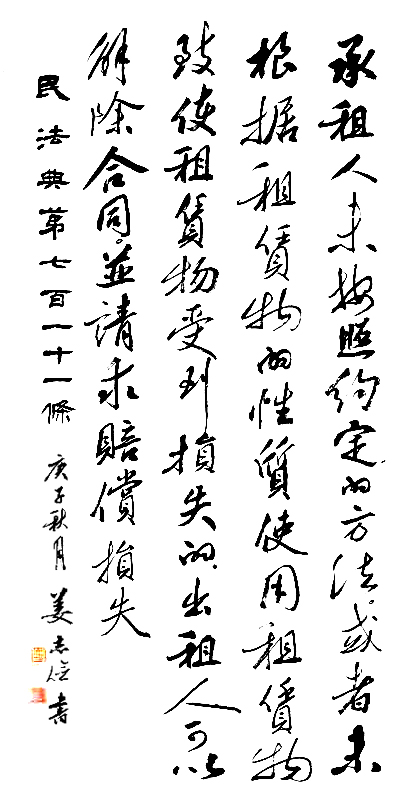 承租人未按照约定的方法或者未
根据租賃物的性質使用租賃物
致使租賃物受到損失的出租人可以
解除合同並請求賠償損失
民法典第七百一十一條 庚子秋月 姜志 書